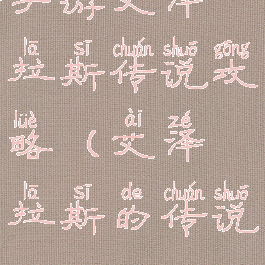 手游艾泽
lā sī chuán shuō gōng
拉斯传说攻
lüè ài zé
略（艾泽
lā sī de chuán shuō
拉斯的传说